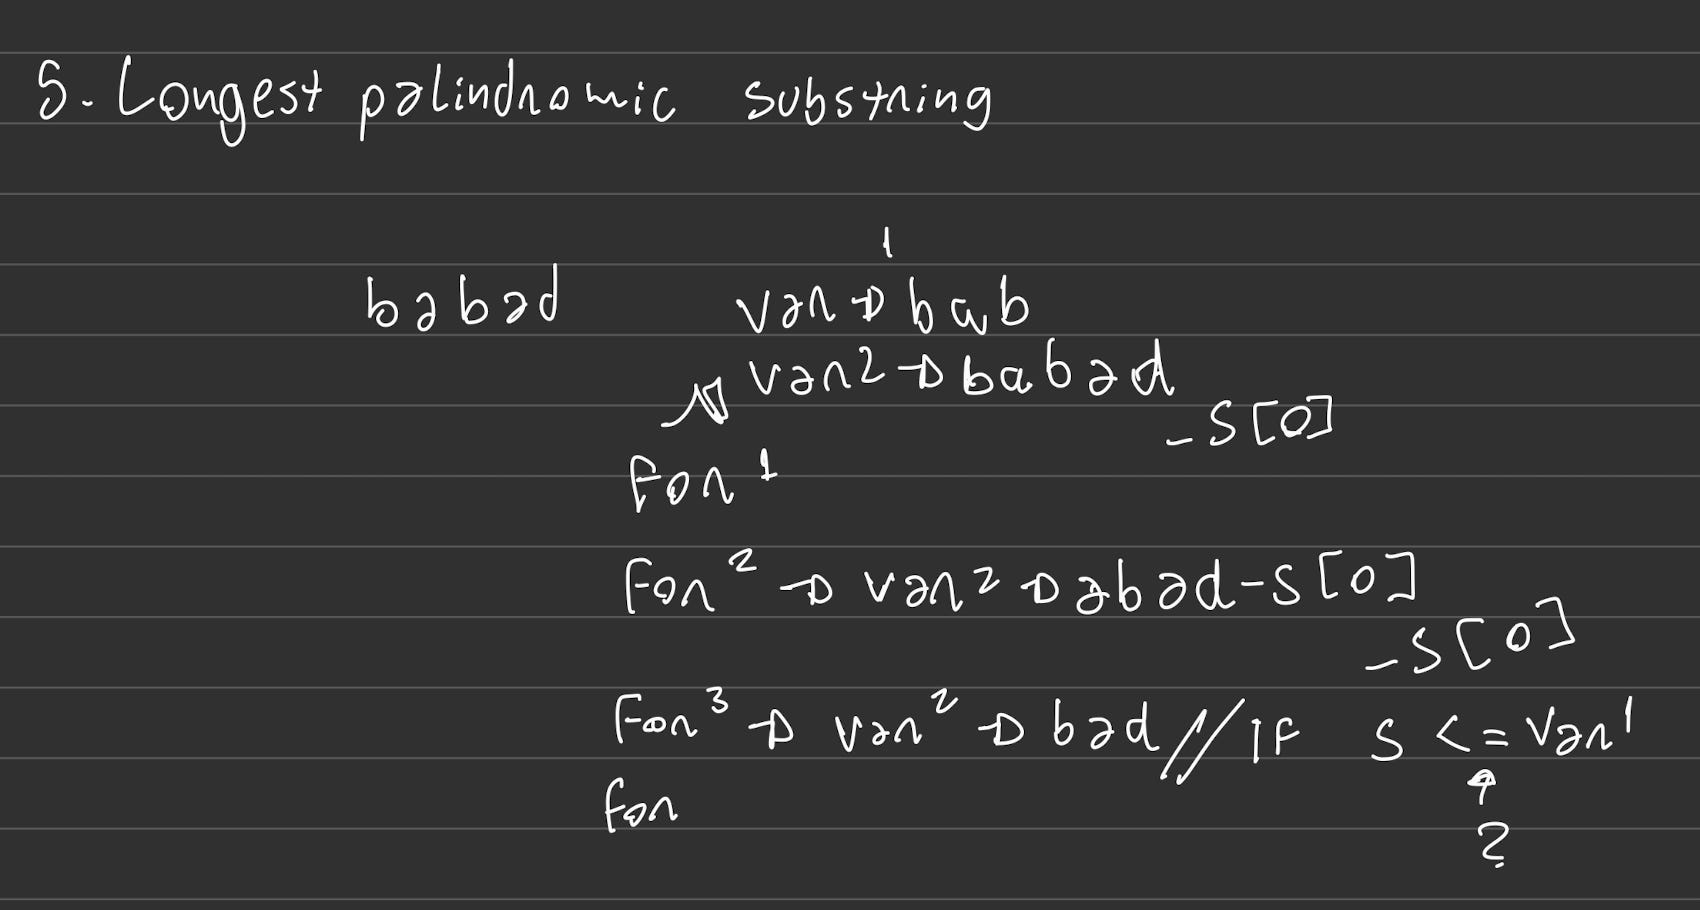 5. Longest palindromic substring
1
babad var → bab
var2 → babad
- S[0]
For 1
For 2 → var 2 → abad - S[0]
- S[0]
For 3 → var 2 → bad // IF S <= var 1
For
?